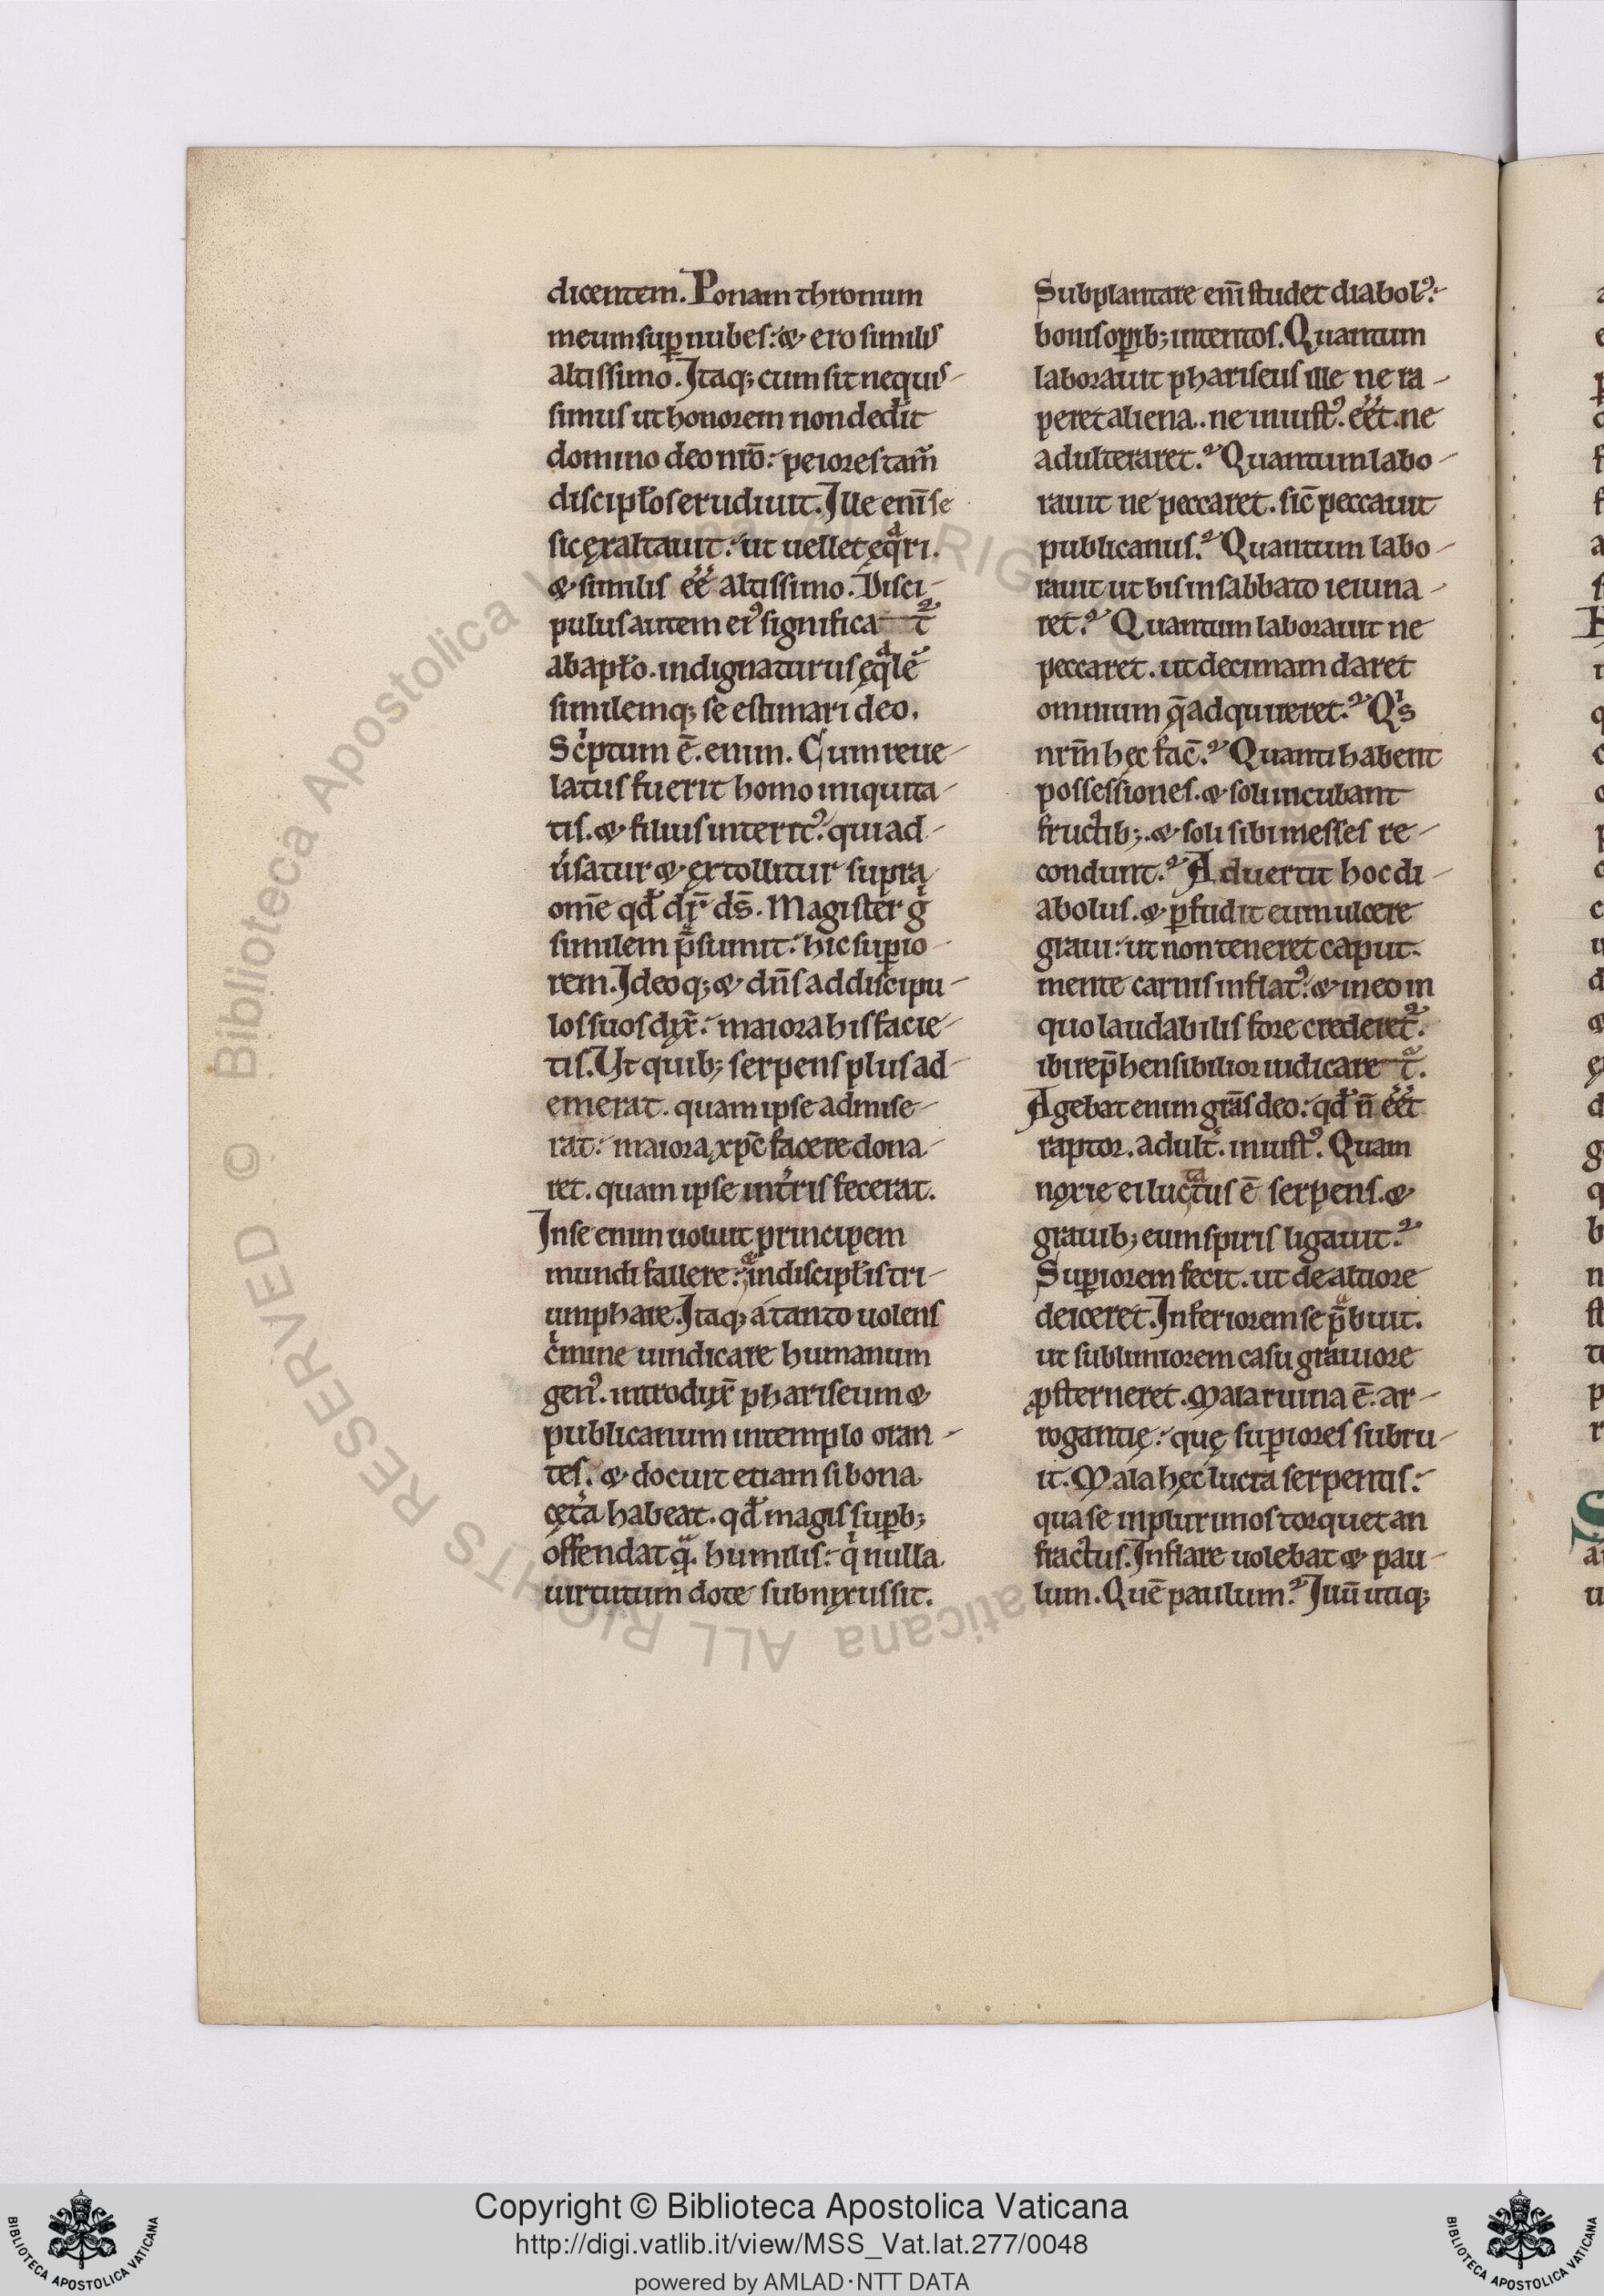 dicentem. Ponam thronum
meum sup̱ nubes: & ero similis
altissimo. Itaq; cum sit nequis-
simus ut honorem non dederit
domino deo nr̄o: peiores tam̄
discipl̓os erudiuit. Ille eni̅ se
sic ęxaltauit: ut uellet ęqͣri.
& similis ee̅ altissimo. Disci-
pulus autem ei᾽ significat̅
ab apl̓o. indignaturus ęqͣle̅
similemq; se estimari deo.
Scͥptum ē. enim. Cum reue-
latus fuerit homo iniquita-
tis. & filius interit᾽. qui ad-
u̓satur & ęxtollitur supra
om̄e qd̓ dr̄ ds̄. Magister gͦ
similem p̄sumit: hic sup̱io-
rem. Ideoq; & dn̄s ad discipu-
los suos dyx̄: maiora his facie-
tis. Ut quib; serpens plus ad-
emerat. quam ipse admise-
rat: maiora xpc̄ facere dona-
ret. quam ipse in t̓ris fecerat.
In se enim uoluit principem
mundi fallere: qͣ in discipl̓is tri-
umphare. Itaq; a tanto uolens
cͥmine uindicare humanum
gen᾽. introdyx̄ phariseum &
publicanum in templo oran-
tes. & docuit etiam si bona
cęt̓a habeat. qd̓ magis sup̱b;
offendat qͣ. humilis: qͥ nulla
uirtutum dote subnyxus sit.
Subplantare eni̅ studet diabol᾽:
bonis op̱ib; intentos. Quantum
laborauit phariseus ille ne ra-
peret aliena. ne iniust᾽. ee̅t. ne
adulteraret.? Quantum labo-
rauit ne peccaret. sic̄ peccauit
publicanus.? Quantum labo-
rauit ut bis in sabbato ieiuna-
ret.? Quantum laborauit ne
peccaret. ut decimam daret
omnium q̄ adquireret.? Qͥs
nrm̄ hęc fac̄.? Quanti habent
possessiones. & soli incubant
fructib;. & soli sibi messes re-
condunt.? Aduertit hoc di-
abolus. & p̱fudit eum ulcere
graui: ut non teneret caput.
mente carnis inflat᾽. & in eo in
quo laudabilis fore crederet̅.
ibi rep̄hensibilior iudicaret̅.
Agebat enim grās deo: qd̓ n̄ ee̅t
raptor. adult̓. iniust᾽. Quam
noxie ei luctatus ē serpens. &
grauib; eum spiris ligauit.?
Sup̱iorem fecit. ut de altiore
deiceret. Inferiorem se p̄buit.
ut sublimiorem casu grauiore
ꝓsterneret. Mala ruina ē. ar-
rogantię: quę sup̱iores subru-
it. Mala hęc lucta serpentis:
qua se in plurimos torquet an
fractus. Inflare uolebat & pau-
lum. Quē paulum.? Illū utiq;
Copyright © Biblioteca Apostolica Vaticana
http://digi.vatlib.it/view/MSS_Vat.lat.277/0048
powered by AMLAD·NTT DATA